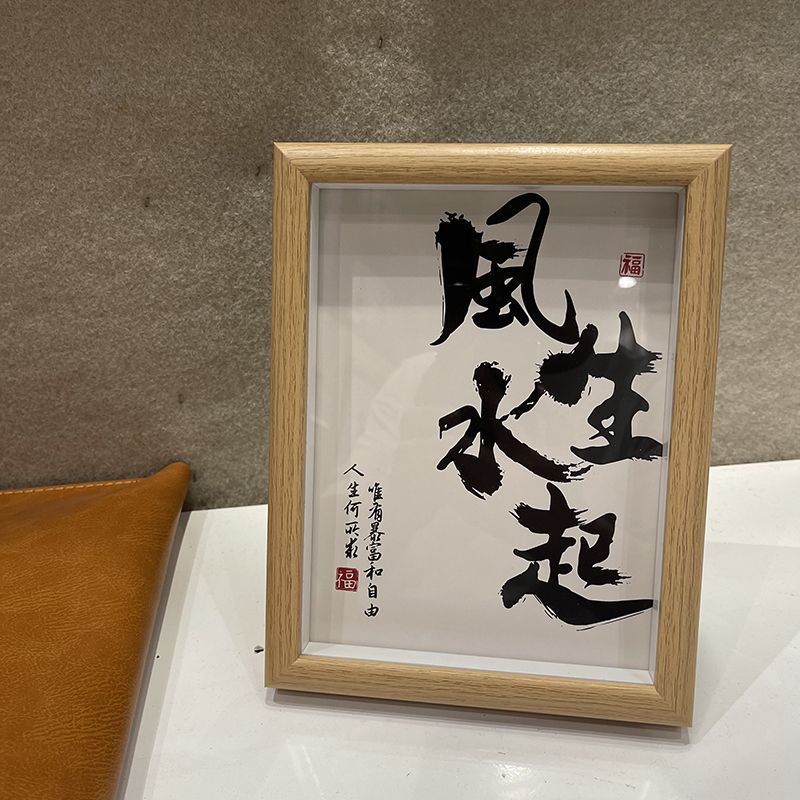 風生水起
福
人生何所求
唯有暴富和自由
福